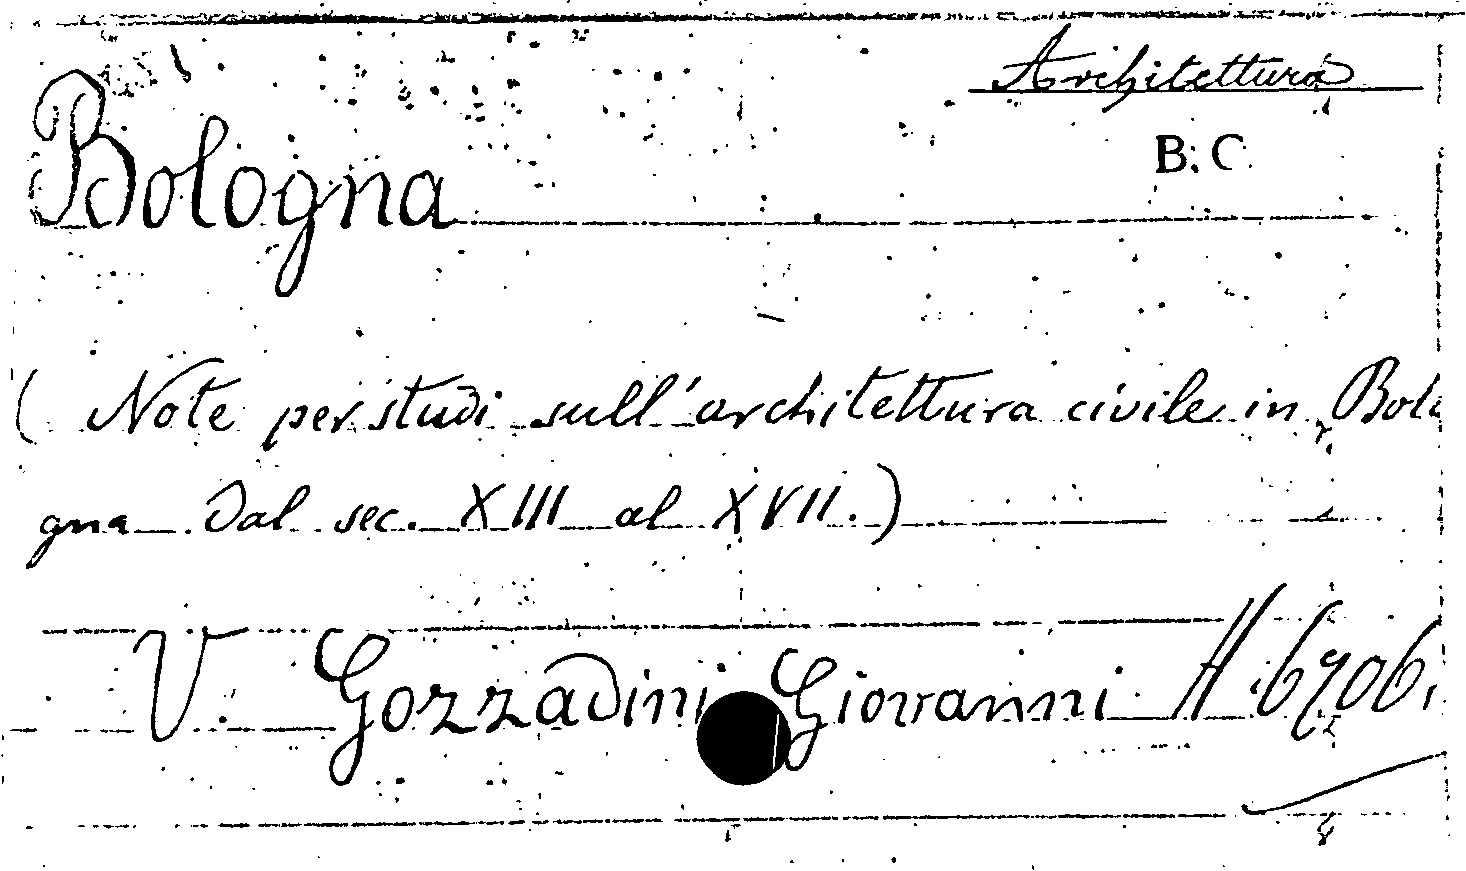 Architettura
B. C
Bologna
( Note per studi sull'architettura civile in Bolo
gna dal sec. XIII al XVII.)
V. Gozzadini Giovanni